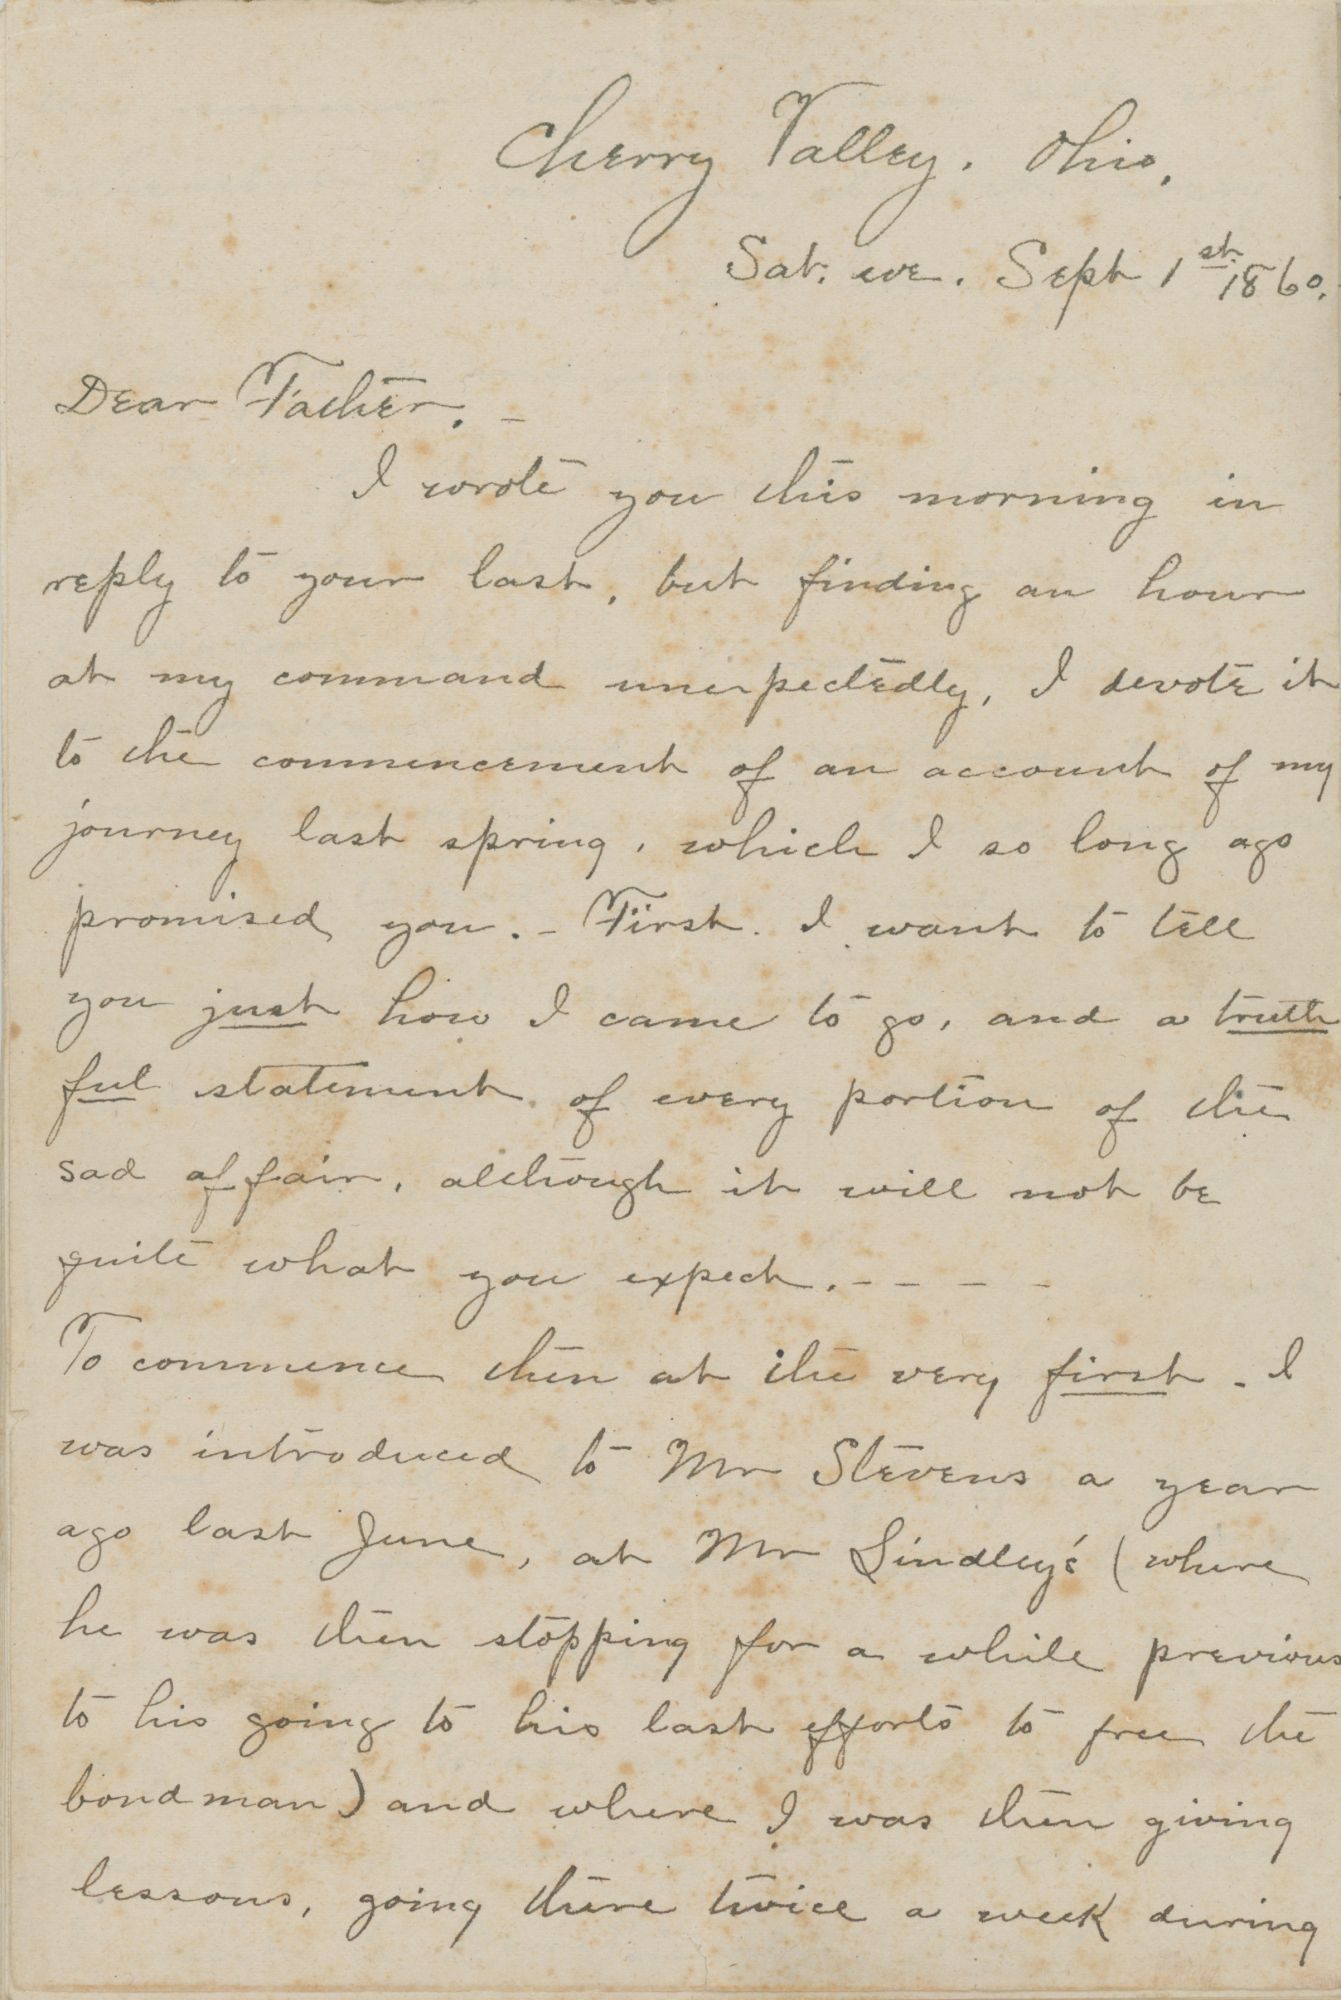 Cherry Valley. Ohio.
Sat. eve. Sept 1st. 1860.
Dear Father. -
I wrote you this morning in
reply to your last, but finding an hour
at my command unexpectedly, I devote it
to the commencement of an account of my
journey last spring, which I so long ago
promised you. - First. I want to tell
you just how I came to go, and a truth
ful statement of every portion of the
sad affair, although it will not be
quite what you expect. - - - -
To commence then at the very first - I
was introduced to Mr Stevens a year
ago last June, at Mr Lindley's (where
he was then stopping for a while previous
to his going to his last efforts to free the
bondman) and where I was then giving
lessons, going there twice a week during